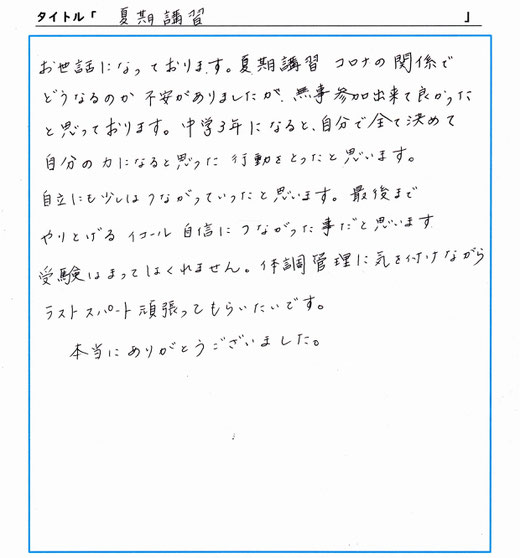 タイトル「 夏期講習 」
お世話になっております。夏期講習 コロナの関係で
どうなるのか 不安がありましたが、無事参加出来て良かった
と思っております。中学3年になると、自分で全て決めて
自分の力になると思った 行動をとったと思います。
自立にも少しはつながっていったと思います。最後まで
やりとげる イコール 自信につながった事だと思います
受験はまってはくれません。体調管理に気を付けながら
ラストスパート頑張ってもらいたいです。
本当にありがとうございました。